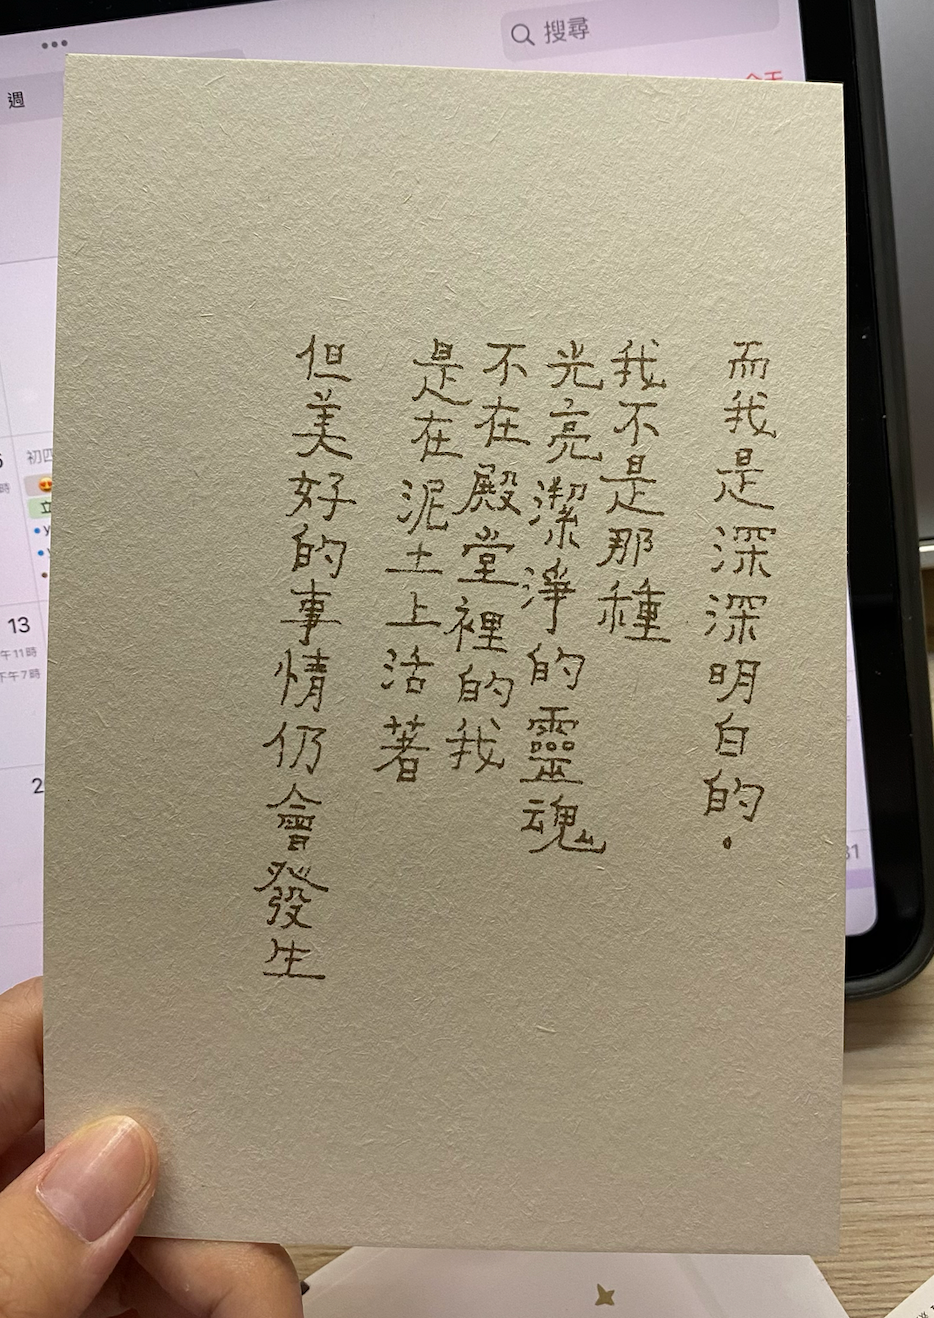 搜尋
週
初四
13
午11時
下午7時
2
31
而我是深深明白的.
我不是那種
光亮潔淨的靈魂
不在殿堂裡的我
是在泥土上活著
但美好的事情仍會發生